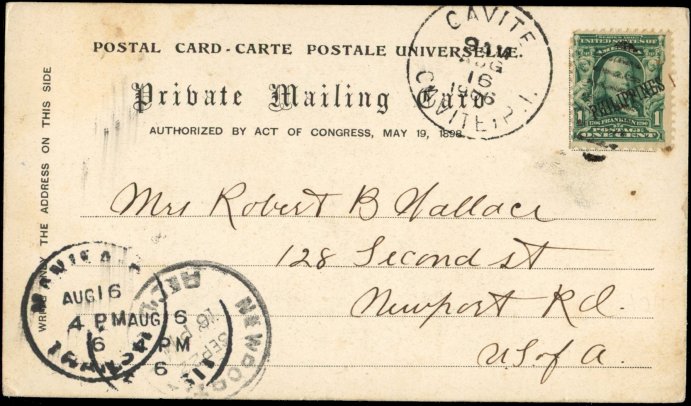 POSTAL CARD - CARTE POSTALE UNIVERSELLE.
Private Mailing Card
AUTHORIZED BY ACT OF CONGRESS, MAY 19, 1898.
WRITE ONLY THE ADDRESS ON THIS SIDE
CAVITE,
AUG
16
1906
CAVITE, P.I.
UNITED STATES OF
AMERICA
PHILIPPINES
1706 FRANKLIN 1790
1 POSTAGE 1
ONE CENT
Mrs Robert B Wallace
128 Second st
Newport Rd.
US of A.
MANILA
AUG 16
4 PM
6
AUG 16
PM
6